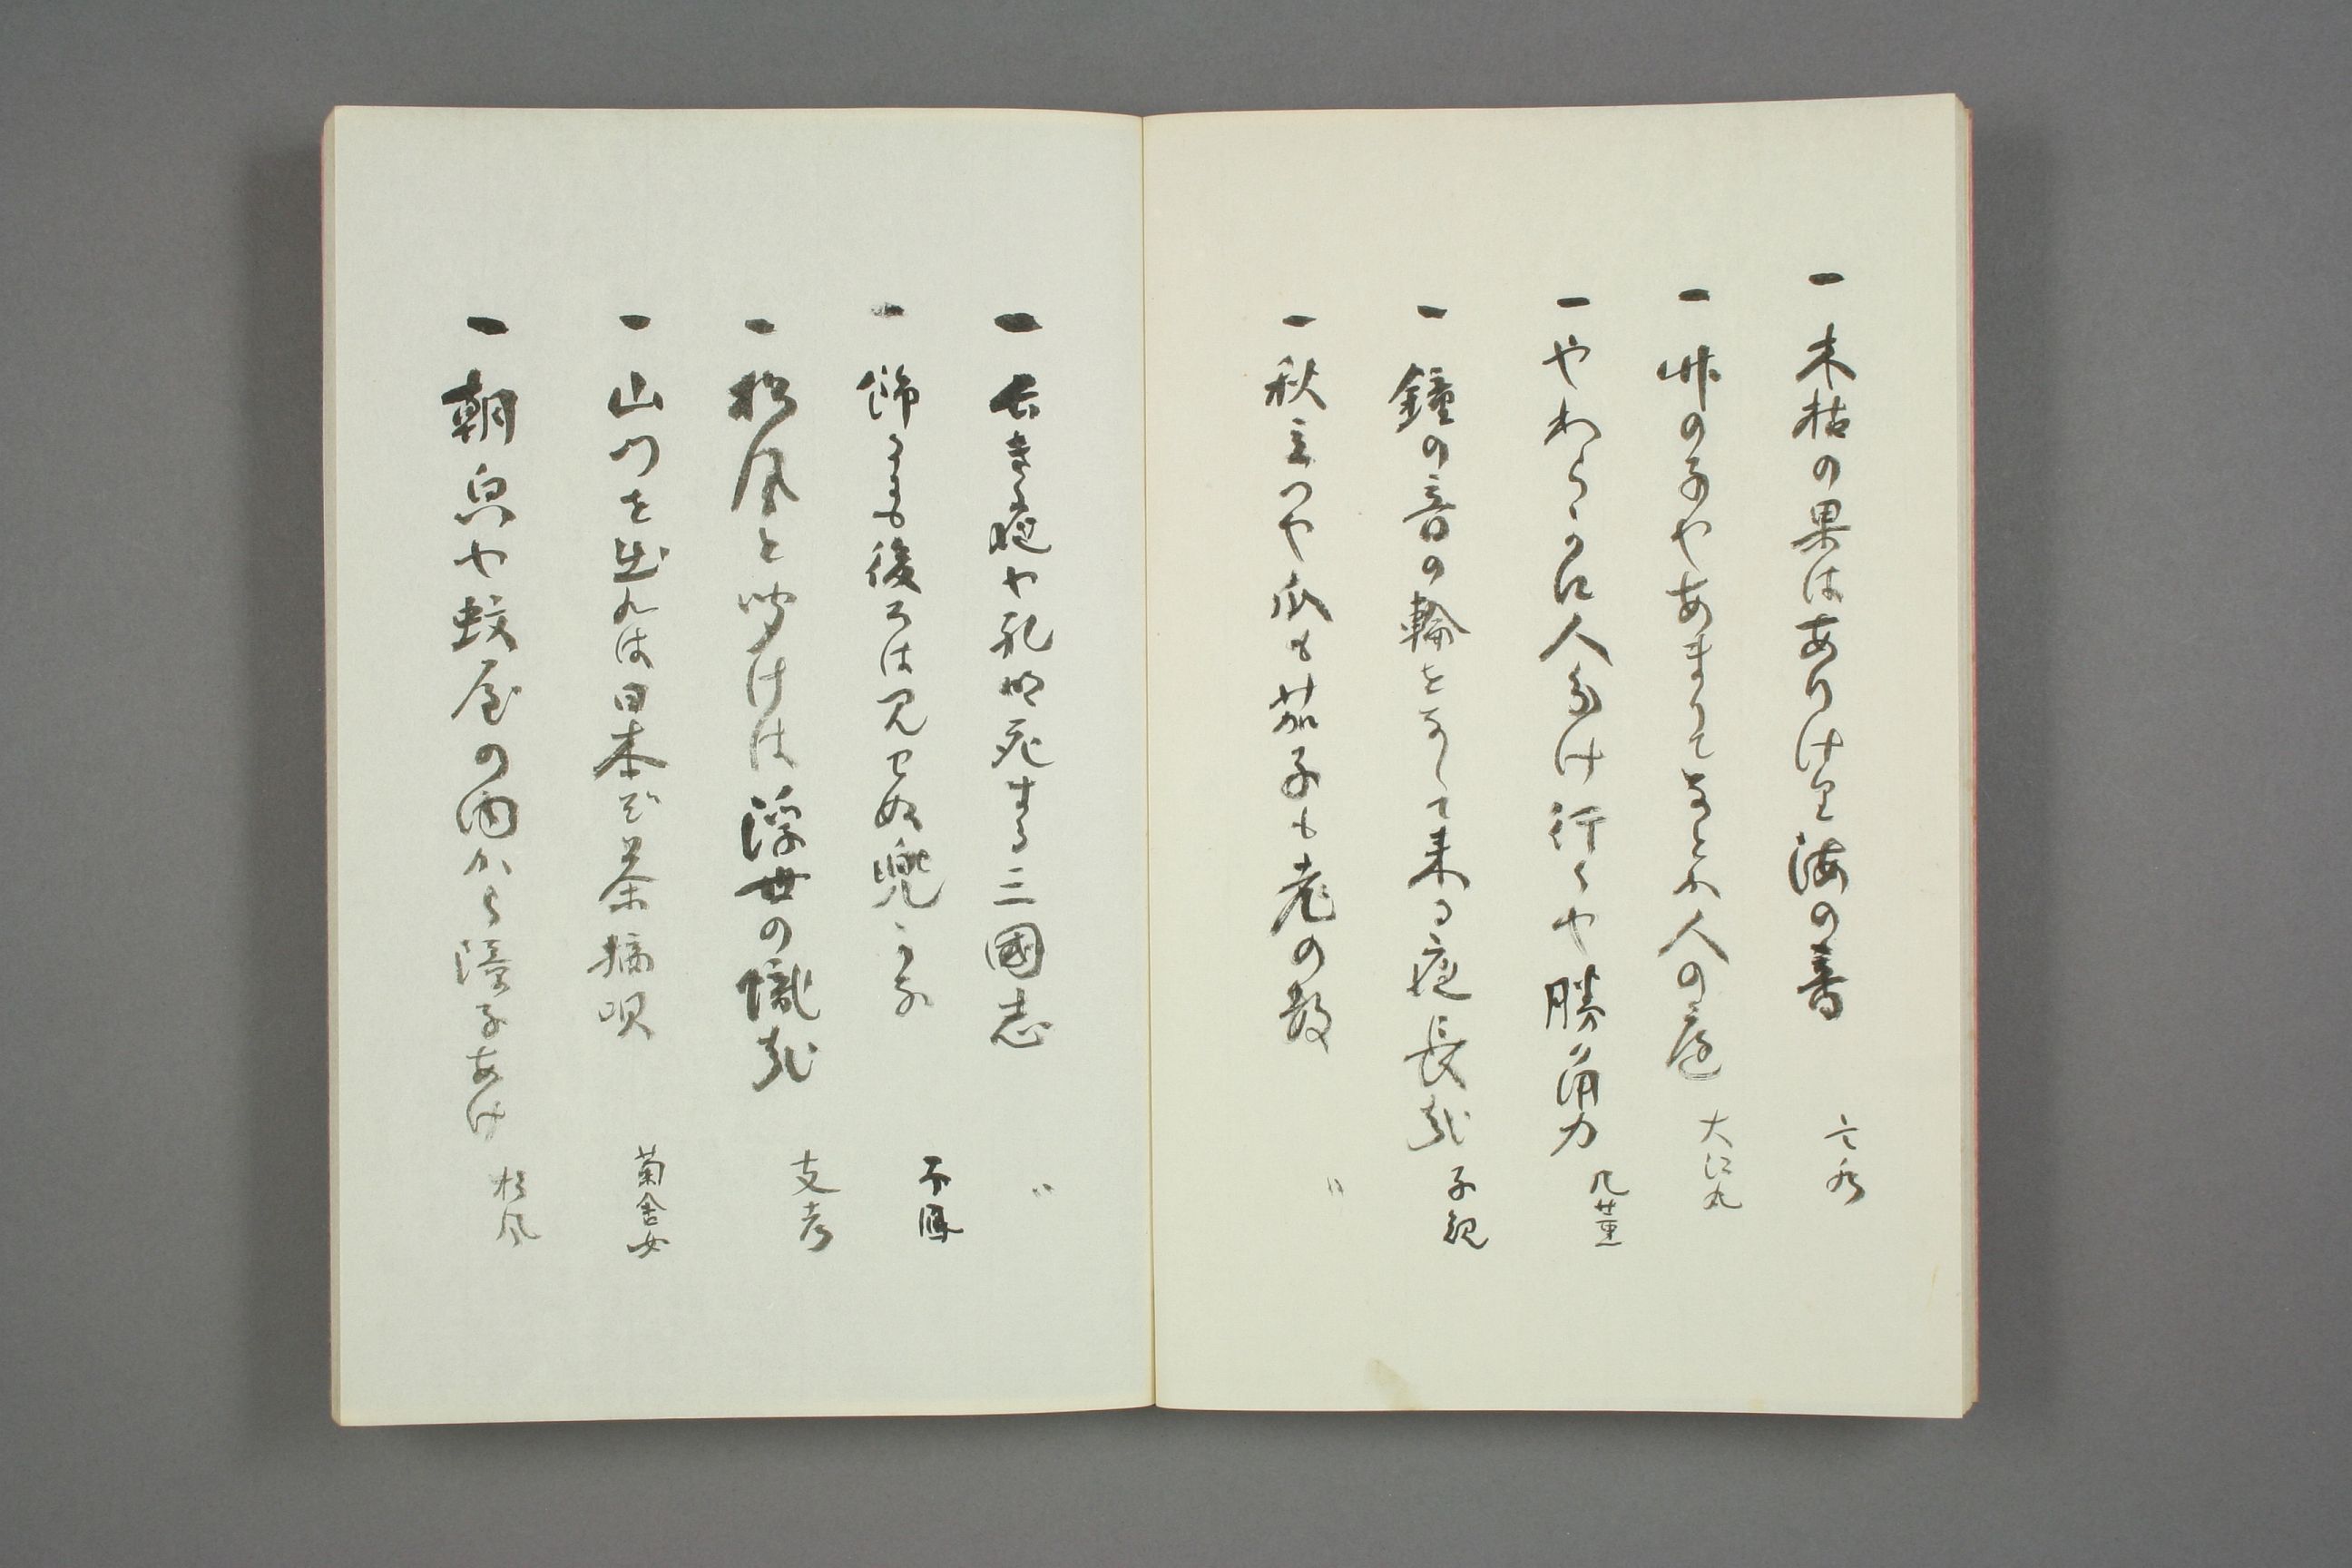 一 木枯の果はありけり海の音 言水
一 竹の子やあまりてなどか人の庭 大江丸
一 やわらかに人分け行くや勝角力 几董
一 鐘の音の輪をなして来る夜長哉 子規
一 秋立つや瓜も茄子も老の数 〃
一 長き夜や孔明死する三國志 〃
一 飾りても後ろは見せぬ兜かな
一 松風と聞けは浮世の幟哉 支考
一 山門を出れは日本ぞ茶摘唄 菊舎女
一 朝皃や蚊屋の内から障子あけ 杉風